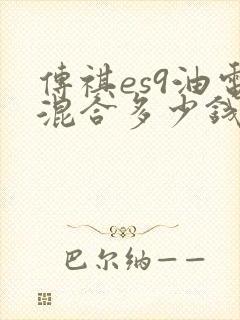 傳祺es9油電
混合多少錢
巴尔纳——